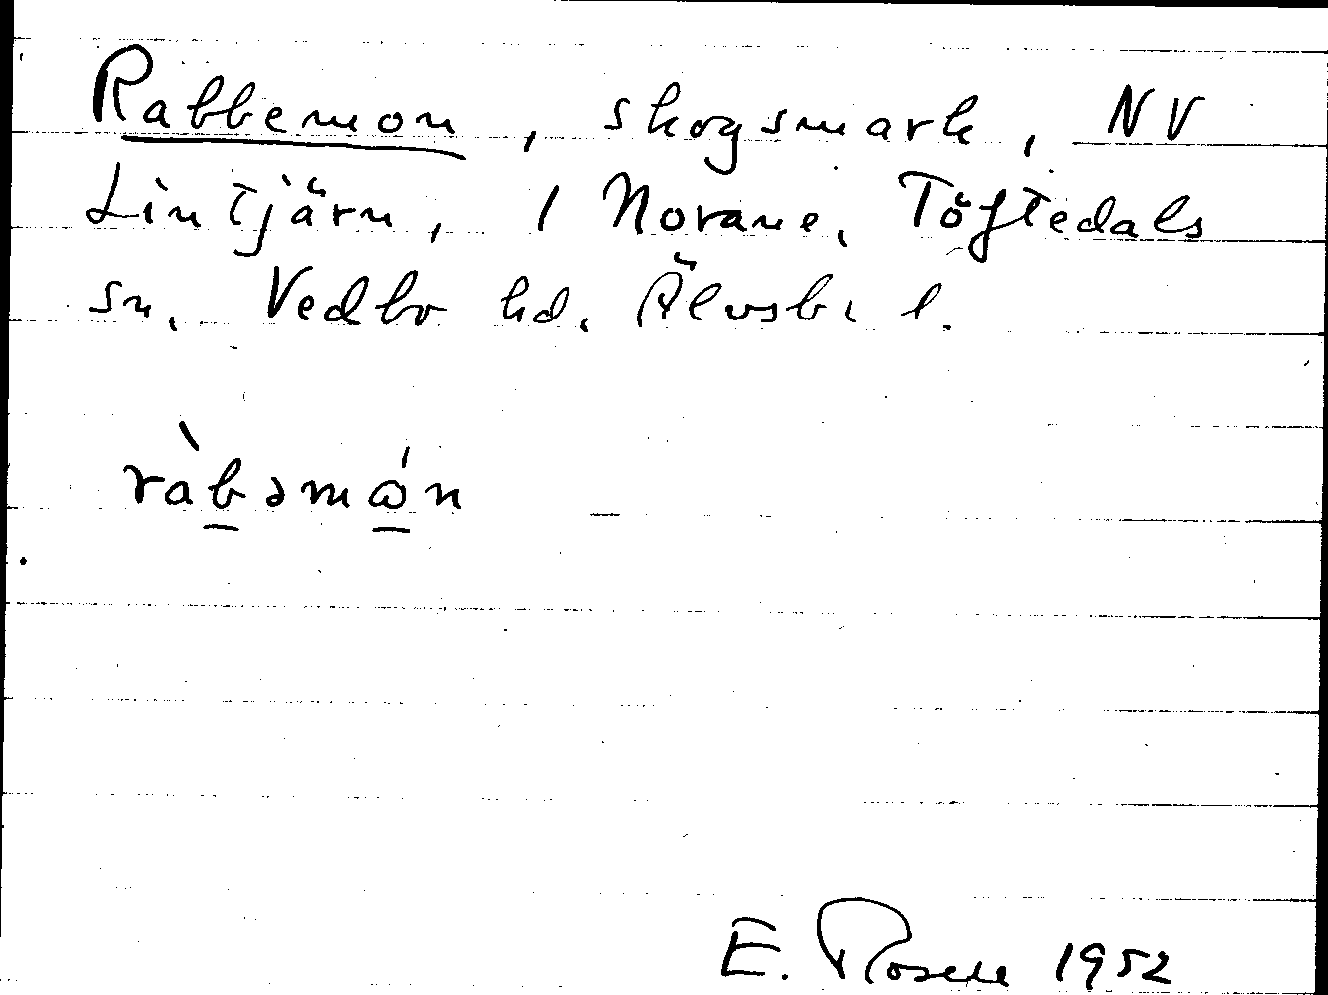 Rabbemon, skogsmark, NV
Lintjärn, 1 Norane, Töftedals
sn, Vedbo hd. Älvsb. l.
ràb̲əmώ̲n
E. Rosell 1952